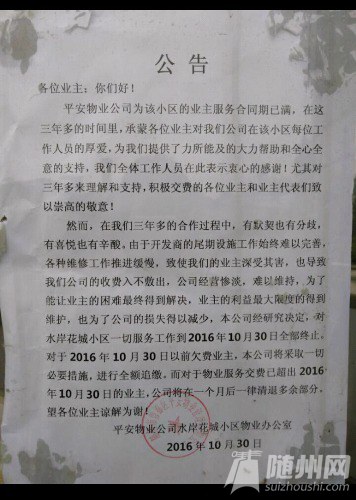 公告
各位业主：你们好！
平安物业公司为该小区的业主服务合同期已满，在这
三年多的时间里，承蒙各位业主对我们公司在该小区每位工
作人员的厚爱，为我们提供了力所能及的大力帮助和全心全
意的支持，我们全体工作人员在此表示衷心的感谢！尤其对
三年多来理解和支持，积极交费的各位业主和业主代表们致
以崇高的敬意！
然而，在我们三年多的合作过程中，有默契也有分歧，
有喜悦也有辛酸，由于开发商的尾期设施工作始终难以完善，
各种维修工作推进缓慢，致使我们的业主深受其害，也导致
我们公司的收费入不敷出，公司经营惨淡，难以维持，为了
能让业主的困难最终得到解决，业主的利益最大限度的得到
维护，也为了公司的损失得以减少，本公司经研究决定，对
水岸花城小区一切服务工作到2016年10月30日全部终止，
对于2016年10月30日以前欠费业主，本公司将采取一切
必要措施，进行全额追缴，而对于物业服务交费已超出2016
年10月30日的业主，公司将在一个月后一律清退多余部分，
望各位业主谅解为谢！
平安物业公司水岸花城小区物业办公室
2016年10月30日
随州网
suizhoushi.com